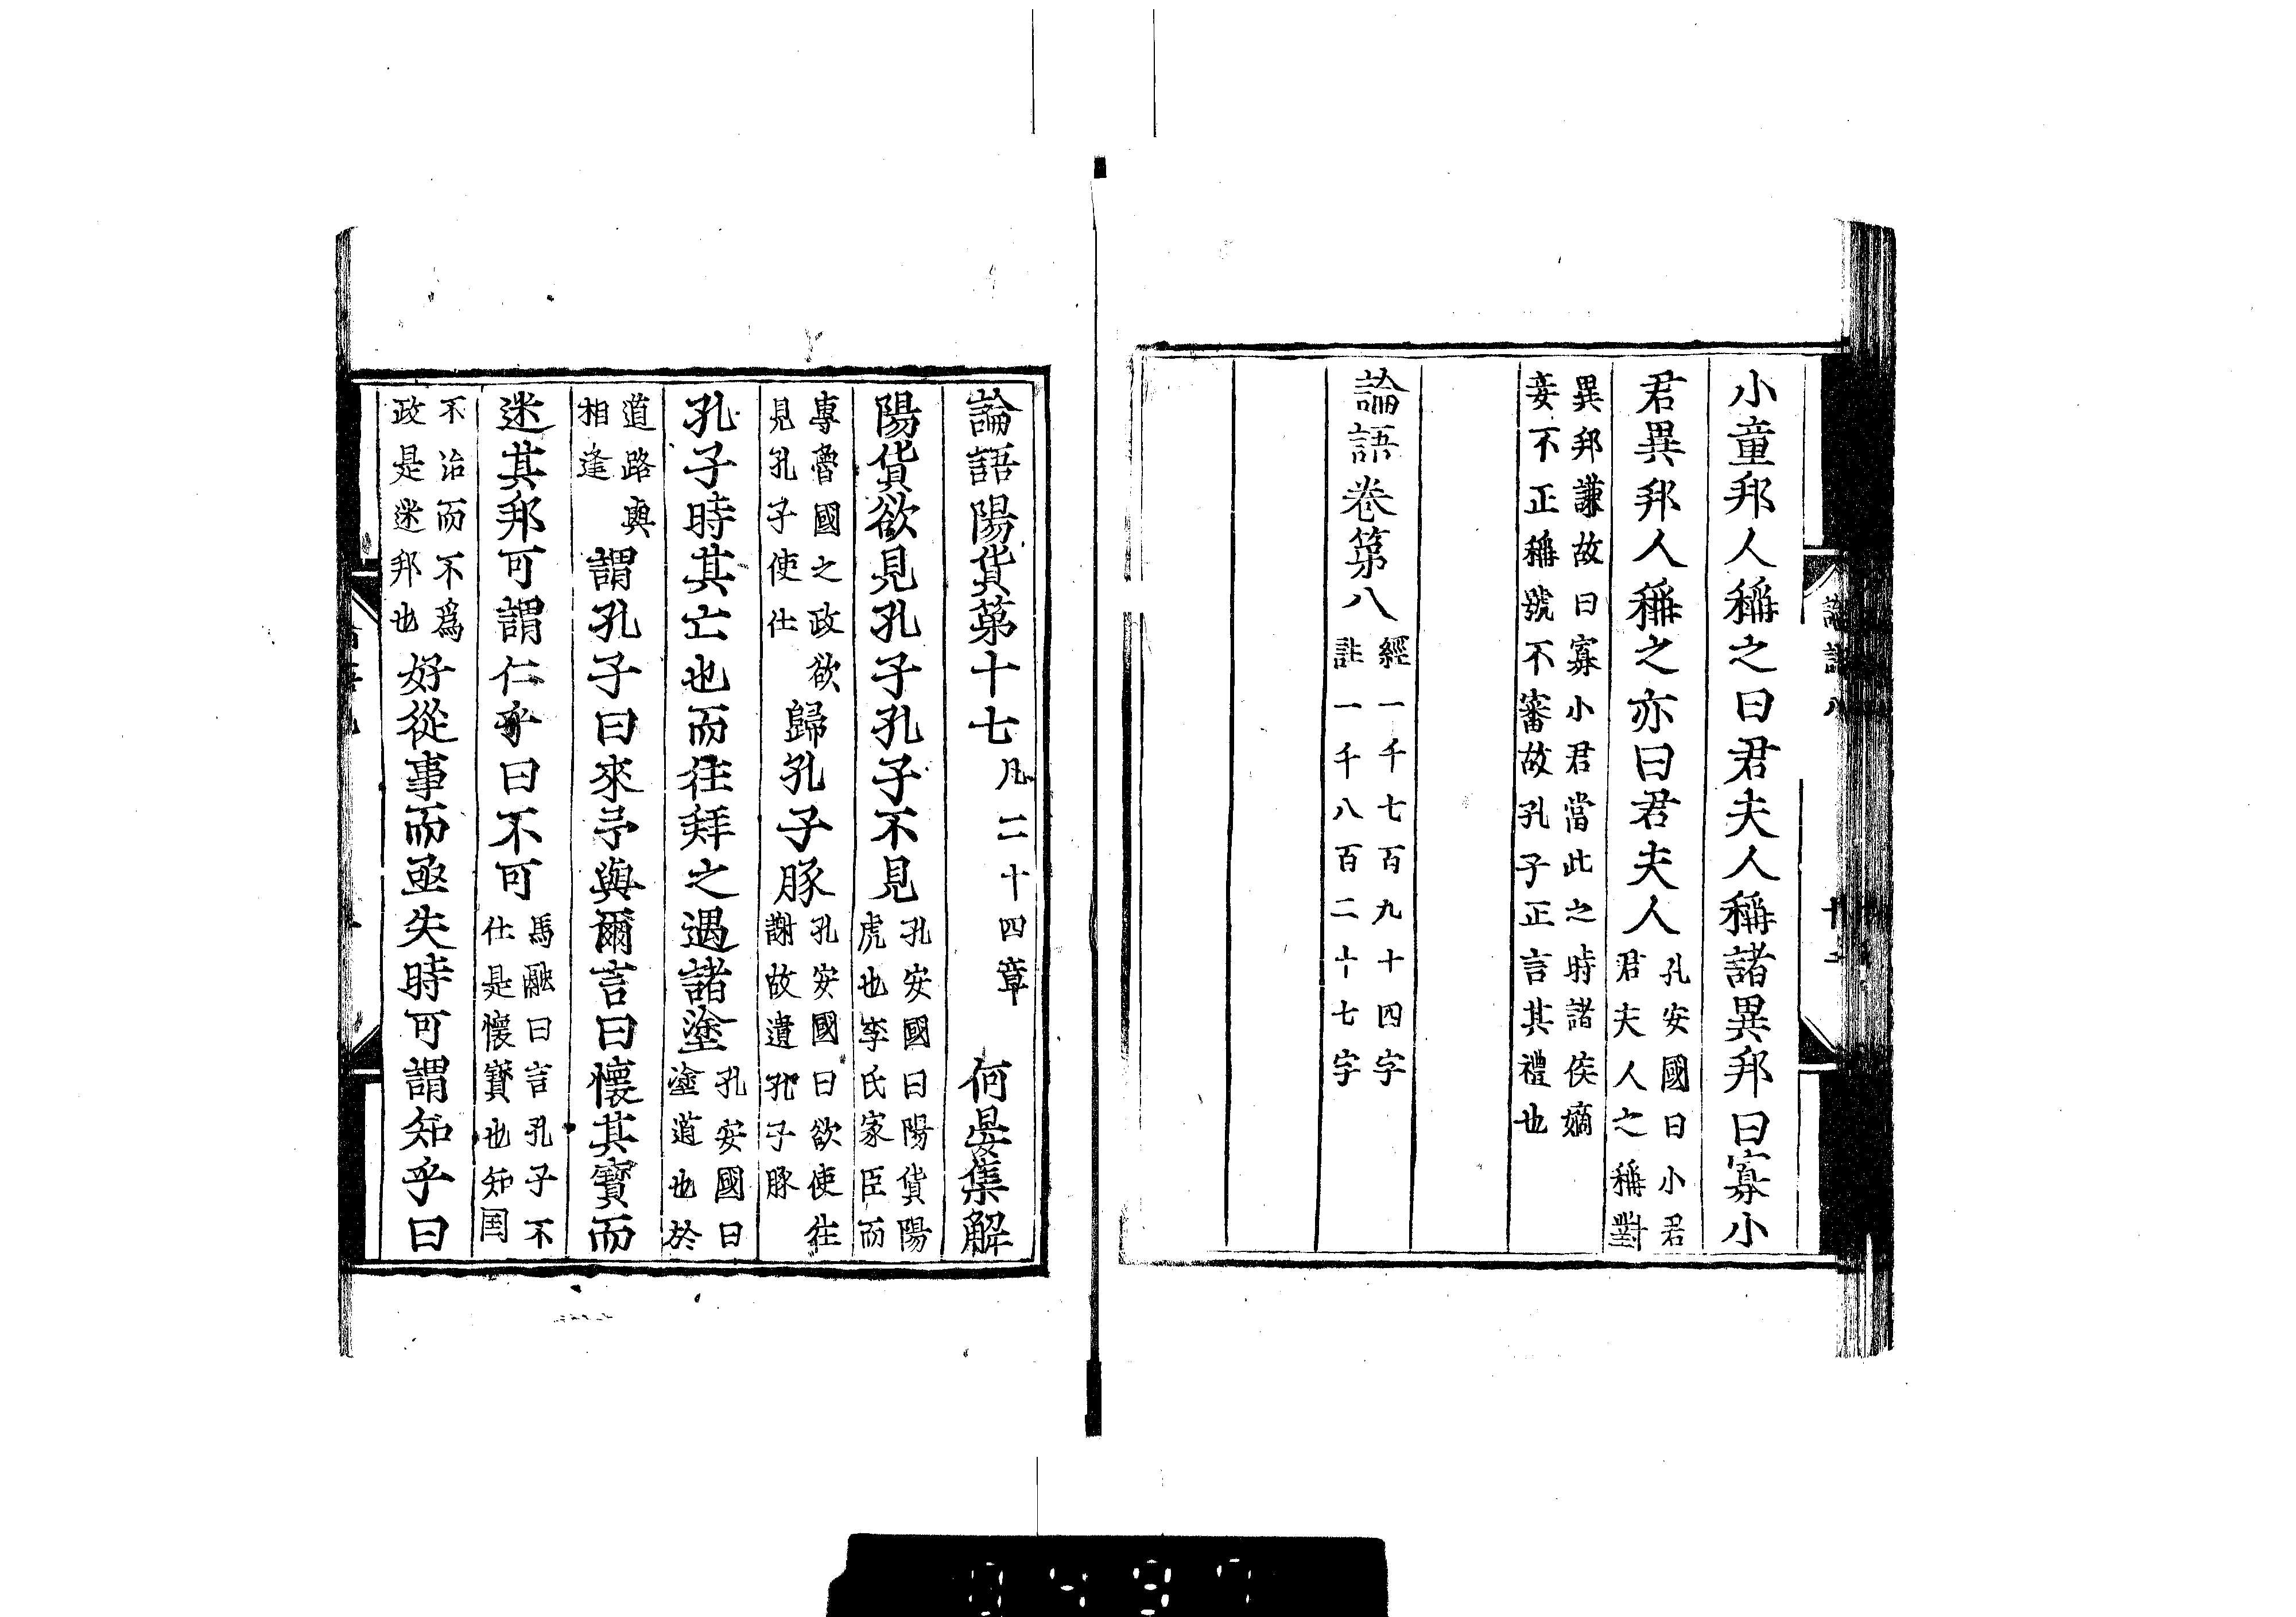 小童邦人稱之曰君夫人稱諸異邦曰寡小
君異邦人稱之亦曰君夫人孔安國曰小君
君夫人之稱對
異邦謙故曰寡小君當此之時諸侯嫡
妾不正稱號不審故孔子正言其禮也
論語卷第八經一千七百九十四字
註一千八百二十七字
論語陽貨第十七凡二十四章 何晏集解
陽貨欲見孔子孔子不見孔安國曰陽貨陽
虎也季氏家臣而
專魯國之政欲
見孔子使仕
歸孔子豚孔安國曰欲使往
謝故遺孔子豚
孔子時其亡也而往拜之遇諸塗孔安國曰
塗道也於
道路與
相逢
謂孔子曰來予與爾言曰懷其寶而
迷其邦可謂仁乎曰不可馬融曰言孔子不
仕是懷寶也知国
不治而不爲
政是迷邦也
好從事而亟失時可謂知乎曰